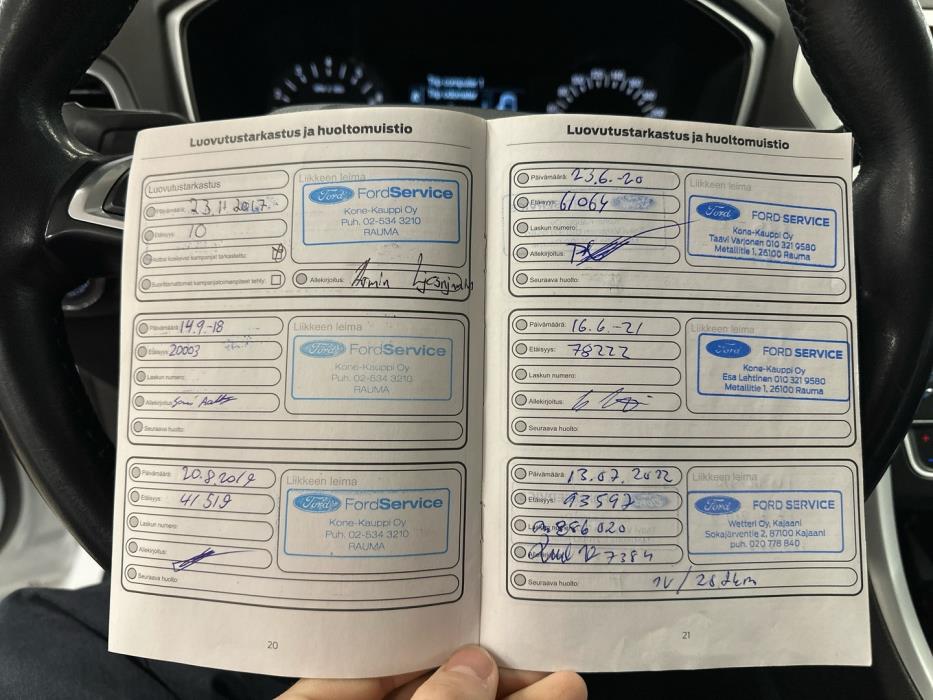 Trip computer 1
Luovutustarkastus ja huoltomuistio
Luovutustarkastus
Päivämäärä: 23.11.2017
Etäisyys: 10
Autoa koskevat kampanjat tarkastettu:
Suorittamattomat kampanjatoimenpiteet tehty:
Liikkeen leima
Ford FordService
Kone-Kauppi Oy
Puh. 02-534 3210
RAUMA
Allekirjoitus:
Päivämäärä: 14.9.-18
Etäisyys: 20003
Laskun numero:
Allekirjoitus:
Seuraava huolto:
Liikkeen leima
Ford FordService
Kone-Kauppi Oy
Puh. 02-534 3210
RAUMA
Päivämäärä: 20.8.2019
Etäisyys: 41 519
Laskun numero:
Allekirjoitus:
Seuraava huolto:
Liikkeen leima
Ford FordService
Kone-Kauppi Oy
Puh. 02-534 3210
RAUMA
20
Luovutustarkastus ja huoltomuistio
Päivämäärä: 23.6.-20
Etäisyys: 61064
Laskun numero:
Allekirjoitus:
Seuraava huolto:
Liikkeen leima
Ford FORD SERVICE
Kone-Kauppi Oy
Taavi Varjonen 010 321 9580
Metallitie 1, 26100 Rauma
Päivämäärä: 16.6.-21
Etäisyys: 78222
Laskun numero:
Allekirjoitus:
Seuraava huolto:
Liikkeen leima
Ford FORD SERVICE
Kone-Kauppi Oy
Esa Lehtinen 010 321 9580
Metallitie 1, 26100 Rauma
Päivämäärä: 13.07.2022
Etäisyys: 93597
886020
7384
Seuraava huolto: 1v/20tkm
Liikkeen leima
Ford FORD SERVICE
Wetteri Oy, Kajaani
Sokajärventie 2, 87100 Kajaani
puh. 020 778 840
21